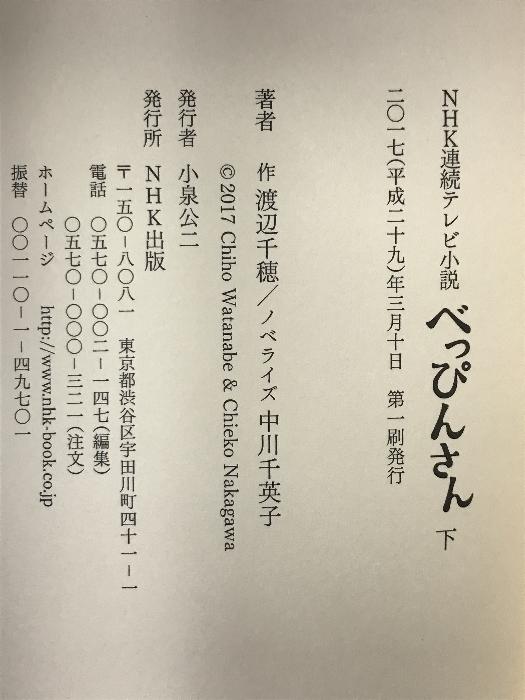 NHK連続テレビ小説 べっぴんさん 下
二〇一七(平成二十九)年三月十日 第一刷発行
著者 作 渡辺千穂/ノベライズ 中川千英子
©2017 Chiho Watanabe & Chieko Nakagawa
発行者 小泉公二
発行所 NHK出版
〒一五〇-八〇八一 東京都渋谷区宇田川町四十一-一
電話 〇五七〇-〇〇二-一四七(編集)
〇五七〇-〇〇〇-三二一(注文)
ホームページ http://www.nhk-book.co.jp
振替 〇〇一一〇-一-四九七〇一